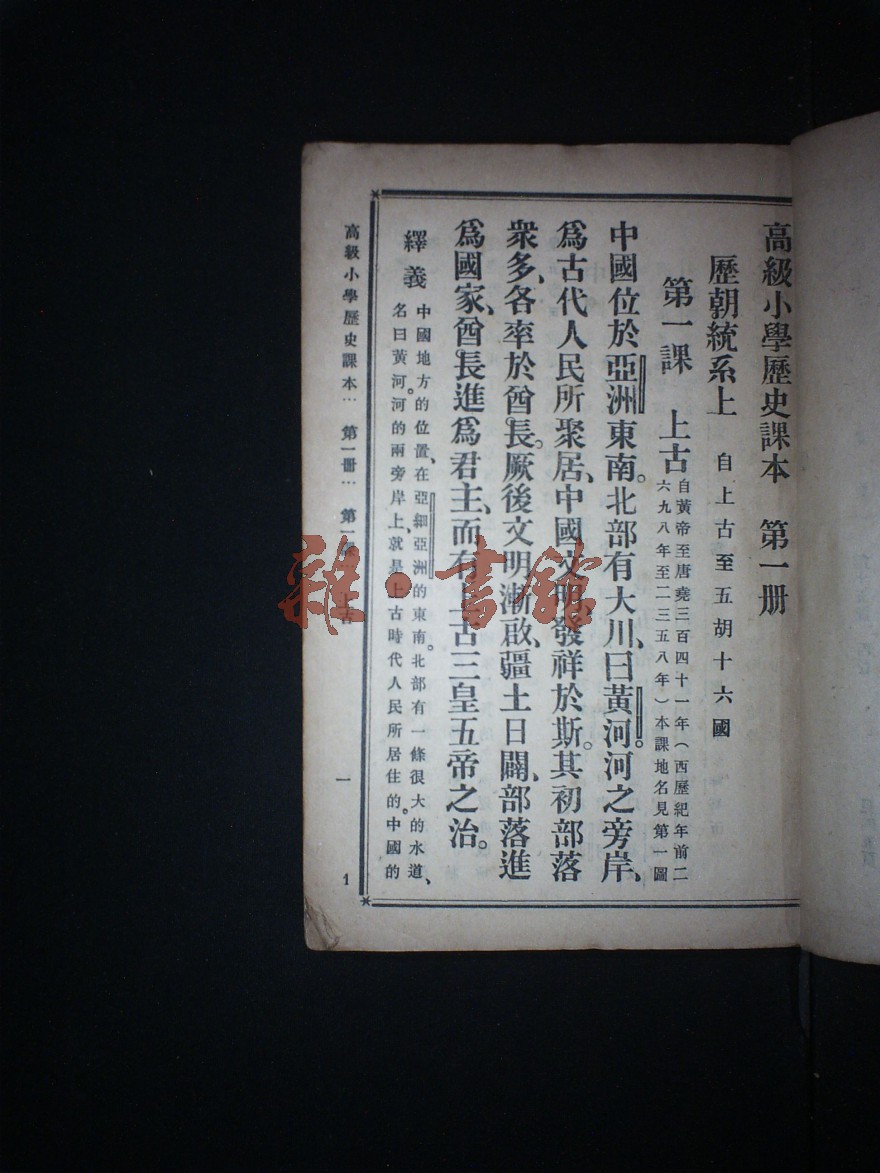 高級小學歷史課本　第一册
歷朝統系上　自上古至五胡十六國
第一課　上古　自黃帝至唐堯三百四十一年（西歷紀年前二
六九八年至二三五八年）本課地名見第一圖
中國位於亞洲東南。北部有大川、曰黃河。河之旁岸、
爲古代人民所聚居、中國文明發祥於斯。其初部落
衆多、各率於酋長。厥後文明漸啟、疆土日闢、部落進
爲國家、酋長進爲君主、而有上古三皇五帝之治。
繹義　中國地方的位置、在亞細亞洲的東南。北部有一條很大的水道、
名曰黃河。河的兩旁岸上、就是上古時代人民所居住的。中國的
高級小學歷史課本⋯　第一册⋯　第一課　上古
一
1
雜·書館